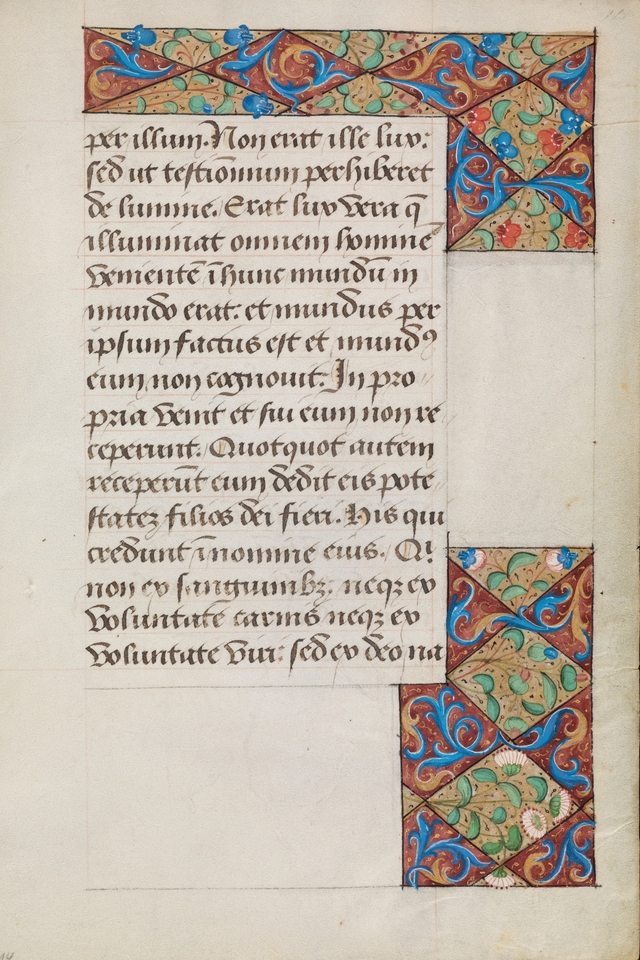 per illum. Non erat ille lux:
sed ut testimonium perhiberet
de lumine. Erat lux vera q̄
illuminat omnem hominē
venientē ī hunc mundū in
mundo erat: et mundus per
ipsum factus est et mundꝰ
eum non cognouit. In pro
pria venit et sui eum non re
ceperunt. Quotquot autem
receperūt eum dedit eis pote
statez filios dei fieri. His qui
credunt ī nomine eius. Qi
non ex sanguinibꝫ neqꝫ ex
voluntate carnis neqꝫ ex
voluntate viri: sed ex deo na